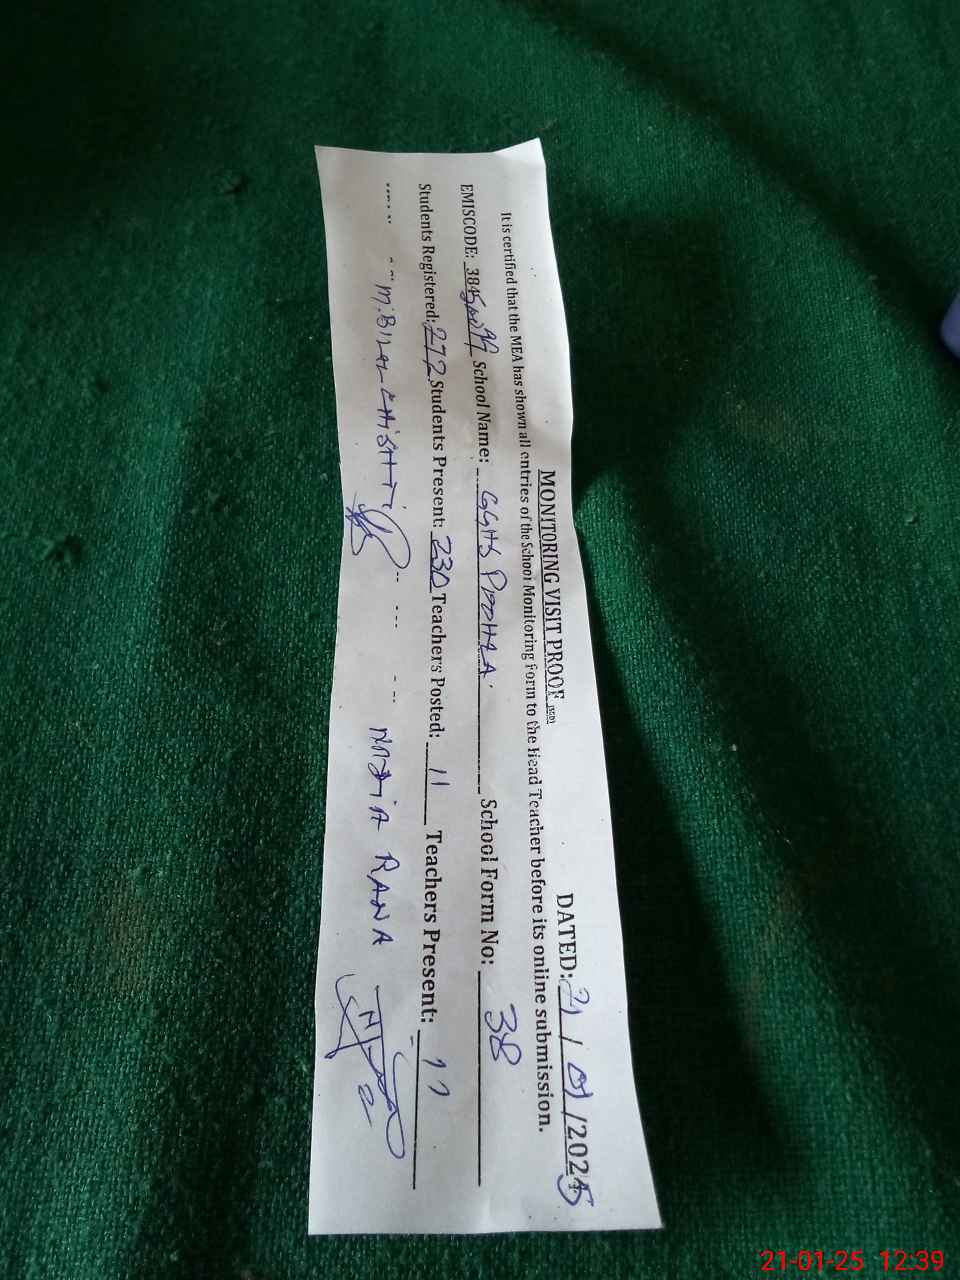 MONITORING VISIT PROOF DATED: 21 / 01 / 2025
It is certified that the MEA has shown all entries of the School Monitoring Form to the Head Teacher before its online submission.
EMISCODE: 3845 School Name: GGHS School Form No: 38
Students Registered: 272 Students Present: 230 Teachers Posted: 11 Teachers Present: 11
M. Bilal CHISHTI NAZIA RANA
21-01-25 12:39